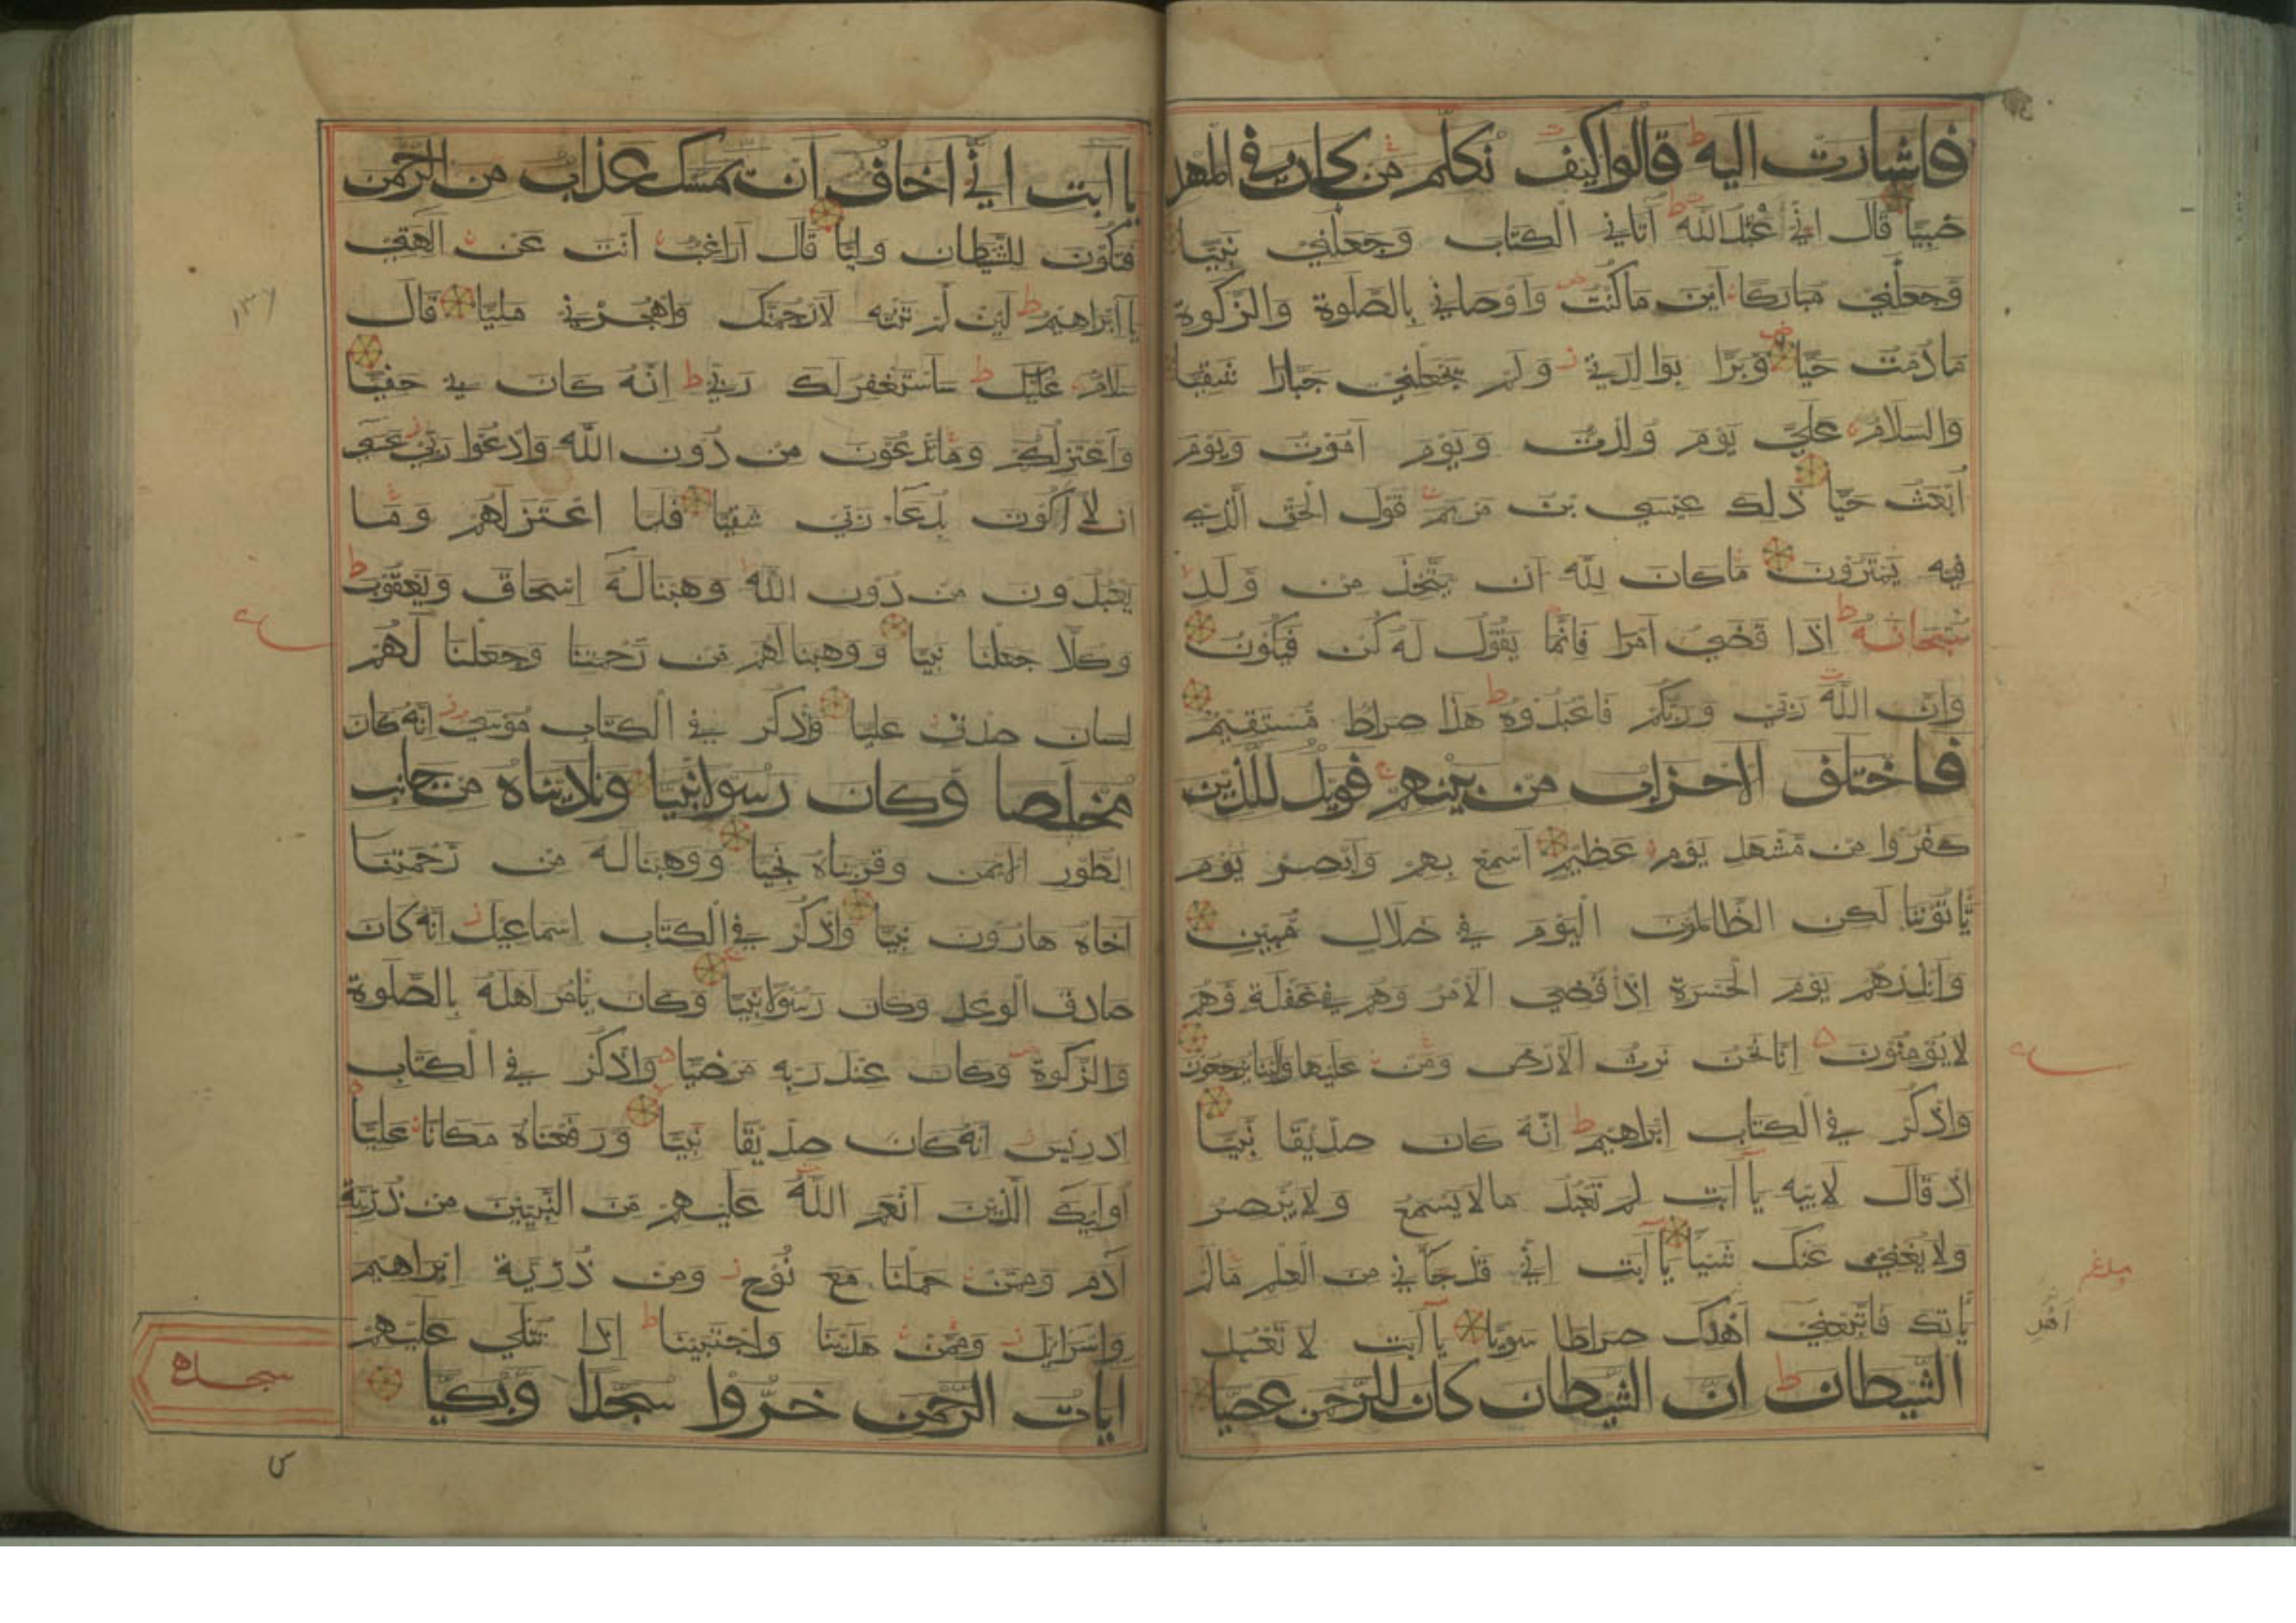 فاشارت اليه قالوا كيف نكلم من كان في المهد
صبيا قال اني عبد الله آتاني الكتاب وجعلني نبيا
وجعلني مباركا اين ماكنت واوصاني بالصلوة والزكوة
مادمت حيا وبرا بوالدتي ولم يجعلني جبارا شقيا
والسلام علي يوم ولدت ويوم اموت ويوم
ابعث حيا ذلك عيسي بن مريم قول الحق الذي
فيه يمترون ماكان لله ان يتخذ من ولد
سبحانه اذا قضي امرا فانما يقول له كن فيكون
وان الله ربي وربكم فاعبدوه هذا صراط مستقيم
فاختلف الاحزاب من بينهم فويل للذين
كفروا من مشهد يوم عظيم اسمع بهم وابصر يوم
ياتوننا لكن الظالمون اليوم في ضلال مبين
وانذرهم يوم الحسرة اذ قضي الامر وهم في غفلة وهم
لايؤمنون انا نحن نرث الارض ومن عليها والينا يرجعون
واذكر في الكتاب ابراهيم انه كان صديقا نبيا
اذ قال لابيه يا ابت لم تعبد مالايسمع ولايبصر
ولايغني عنك شيئا يا ابت اني قد جاني من العلم مالم
ياتك فاتبعني اهدك صراطا سويا يا ابت لا تعبد
الشيطان ان الشيطان كان للرحمن عصيا
يا ابت اني اخاف ان يمسك عذاب من الرحمن
فتكون للشيطان وليا قال اراغب انت عن الهتي
يا ابراهيم لين لم تنته لارجمنك واهجرني مليا قال
سلام عليك ساستغفر لك ربي انه كان بي حفيا
واعتزلكم وماتدعون من دون الله وادعوا ربي عسي
ان لا اكون بدعاء ربي شقيا فلما اعتزلهم وما
يعبدون من دون الله وهبناله اسحاق ويعقوب
وكلا جعلنا نبيا ووهبنالهم من رحمتنا وجعلنا لهم
لسان صدق عليا واذكر في الكتاب موسي انه كان
مخلصا وكان رسولا نبيا وناديناه من جانب
الطور الايمن وقربناه نجيا ووهبناله من رحمتنا
اخاه هارون نبيا واذكر في الكتاب اسماعيل انه كان
صادق الوعد وكان رسولا نبيا وكان يامر اهله بالصلوة
والزكوة وكان عند ربه مرضيا واذكر في الكتاب
ادريس انه كان صديقا نبيا ورفعناه مكانا عليا
اوليك الذين انعم الله عليهم من النبيين من ذرية
آدم وممن حملنا مع نوح ومن ذرية ابراهيم
واسرايل وممن هدينا واجتبينا اذا تتلي عليهم
ايات الرحمن خروا سجدا وبكيا
سجده